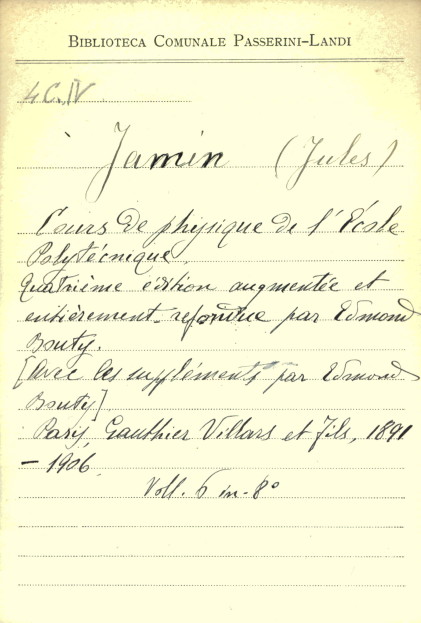 BIBLIOTECA COMUNALE PASSERINI-LANDI
4 C. IV
Jamin (Jules)
Cours de physique de l'École
Polytécnique.
Quatrième édition augmentée et
entièrement refondue par Edmond
Bouty.
[Avec les suppléments par Edmond
Bouty]
Paris, Gauthier Villars et fils, 1891
- 1906.
Voll. 6 in-8°